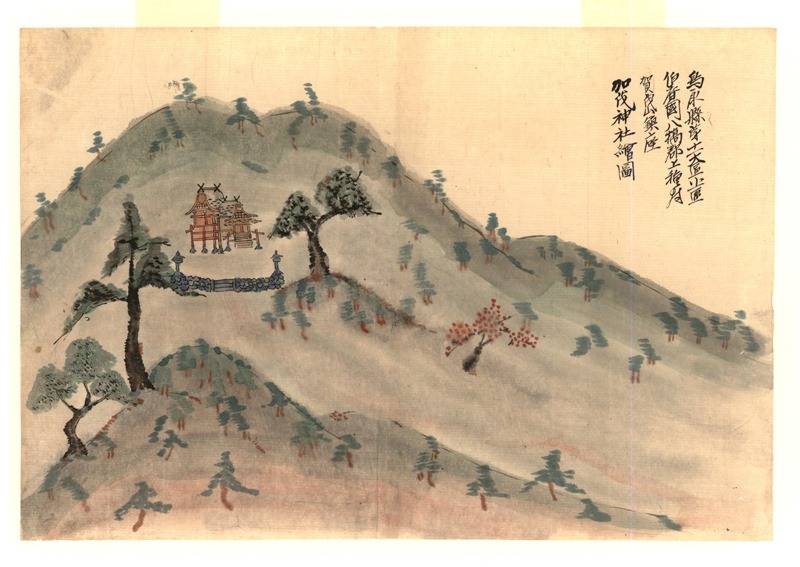 鳥取縣第十大區小區
伯耆國八橋郡上種村
賀茂山鎮座
加茂神社繪圖